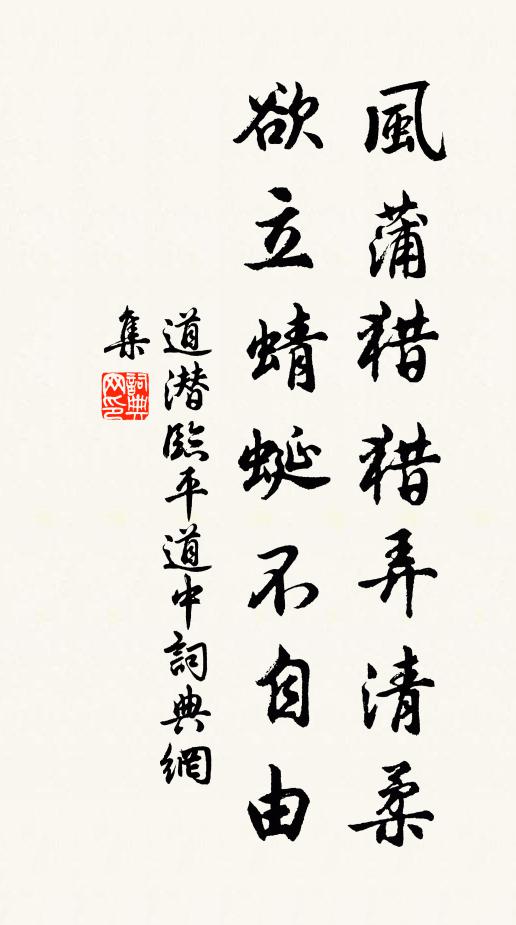 風蒲猎猎弄清柔
欲立蜻蜓不自由
道潜臨平道中詞典網
集
詞典
网印